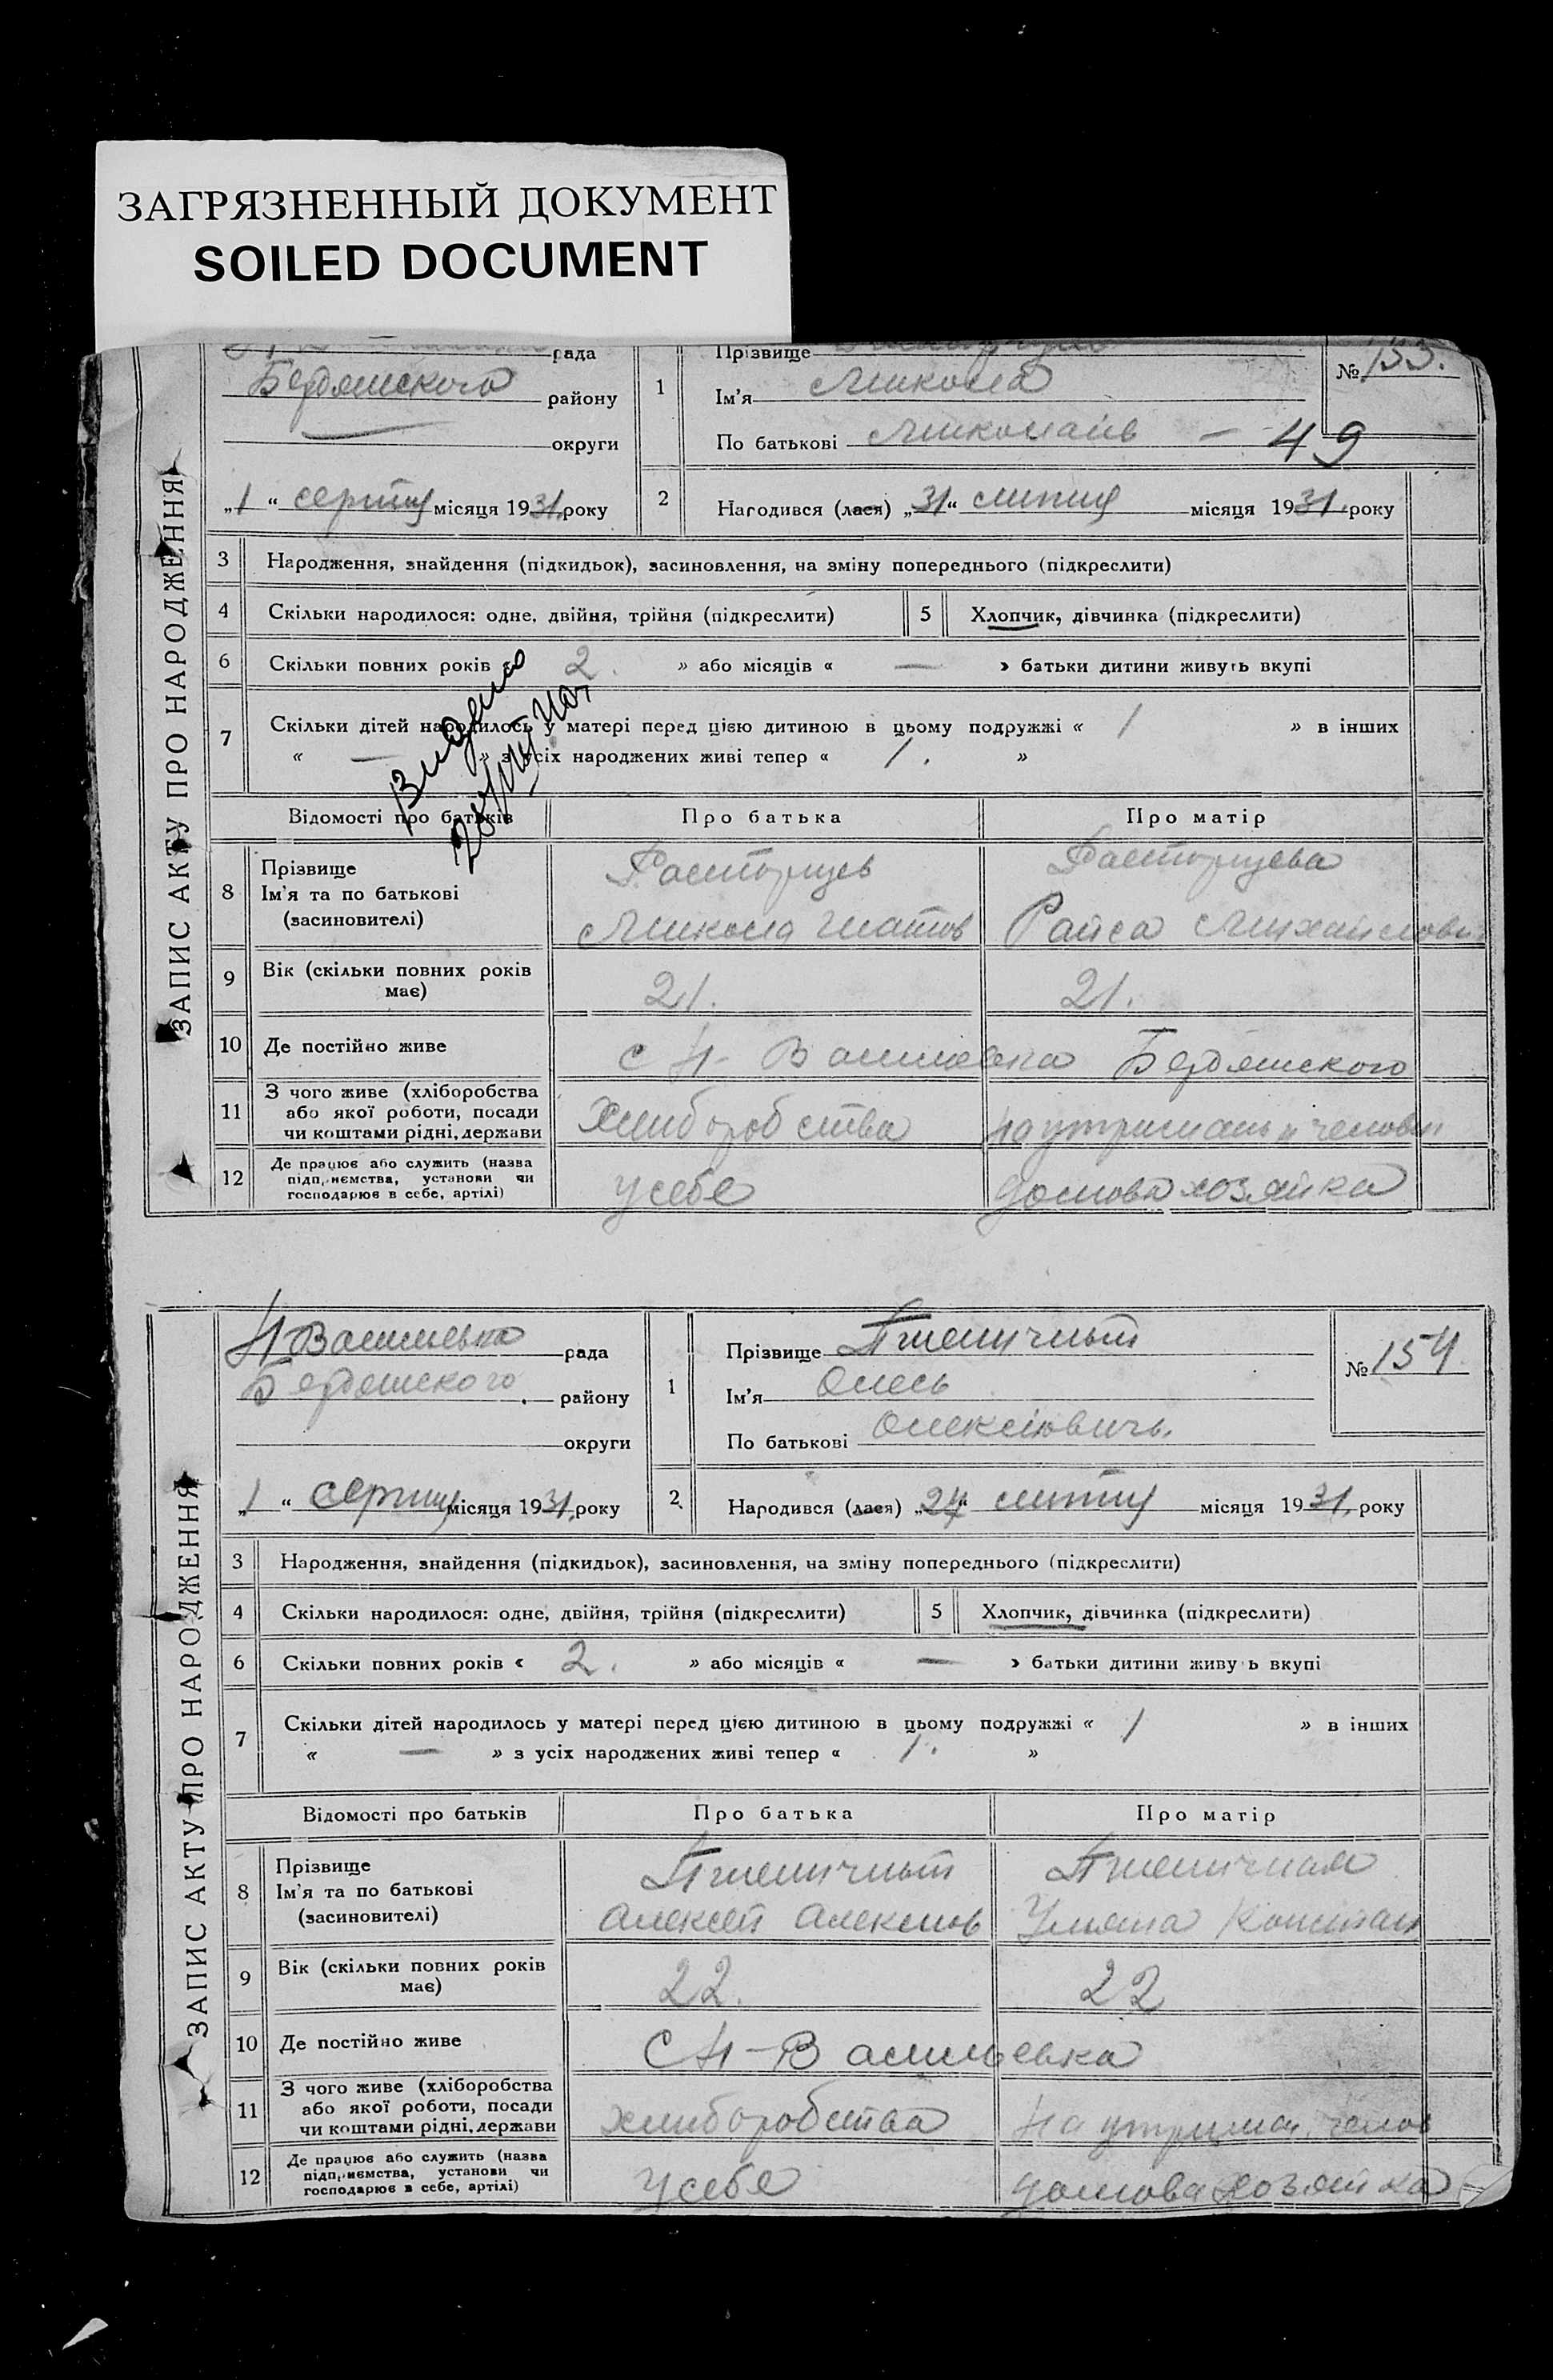 ЗАГРЯЗНЕННЫЙ ДОКУМЕНТ
SOILED DOCUMENT
ЗАПИС АКТУ ПРО НАРОДЖЕННЯ
рада
Бердянського району
округи
„1“ серпня місяця 1931 року
1
Прізвище
Ім'я Микола
По батькові Миколаїв – 49
№ 153.
2
Народився (лася) „31“ липня місяця 1931 року
3 Народження, знайдення (підкидьок), засиновлення, на зміну попереднього (підкреслити)
4 Скільки народилося: одне, двійня, трійня (підкреслити) 5 Хлопчик, дівчинка (підкреслити)
6 Скільки повних років « 2. » або місяців « — » батьки дитини живуть вкупі
7 Скільки дітей народилось у матері перед цією дитиною в цьому подружжі « 1 » в інших
« — » з усіх народжених живі тепер « 1. »
Видано
Відомості про батьків Про батька Про матір
8 Прізвище Расторцев Расторцева
Ім'я та по батькові
(засиновителі) Микола Раиса Михайлов
9 Вік (скільки повних років має) 21. 21.
10 Де постійно живе с Н-Васильевка Бердянського
11 З чого живе (хліборобства
або якої роботи, посади
чи коштами рідні, держави Хлиборобства На утримань чолов
12 Де працює або служить (назва
підприємства, установи чи
господарює в себе, артілі) У себе домова хозяйка
ЗАПИС АКТУ ПРО НАРОДЖЕННЯ
Н Васильевка рада
Бердянського району
округи
„1“ серпня місяця 1931. року
1
Прізвище Пшеничный
Ім'я Олесь
По батькові Олексіювичь.
№ 154
2
Народився (лася) „24“ липня місяця 1931. року
3 Народження, знайдення (підкидьок), засиновлення, на зміну попереднього (підкреслити)
4 Скільки народилося: одне, двійня, трійня (підкреслити) 5 Хлопчик, дівчинка (підкреслити)
6 Скільки повних років « 2. » або місяців « — » батьки дитини живу ь вкупі
7 Скільки дітей народилось у матері перед цією дитиною в цьому подружжі « 1 » в інших
« — » з усіх народжених живі тепер « 1. »
Відомості про батьків Про батька Про матір
8 Прізвище Пшеничный Пшеничная
Ім'я та по батькові
(засиновителі) Алексей Алексиов Уляна Констан
9 Вік (скільки повних років має) 22. 22
10 Де постійно живе С Н-Васильевка
11 З чого живе (хліборобства
або якої роботи, посади
чи коштами рідні, держави хлиборобства На утриман. чолов
12 Де працює або служить (назва
підприємства, установи чи
господарює в себе, артілі) У себе домова хозяйка